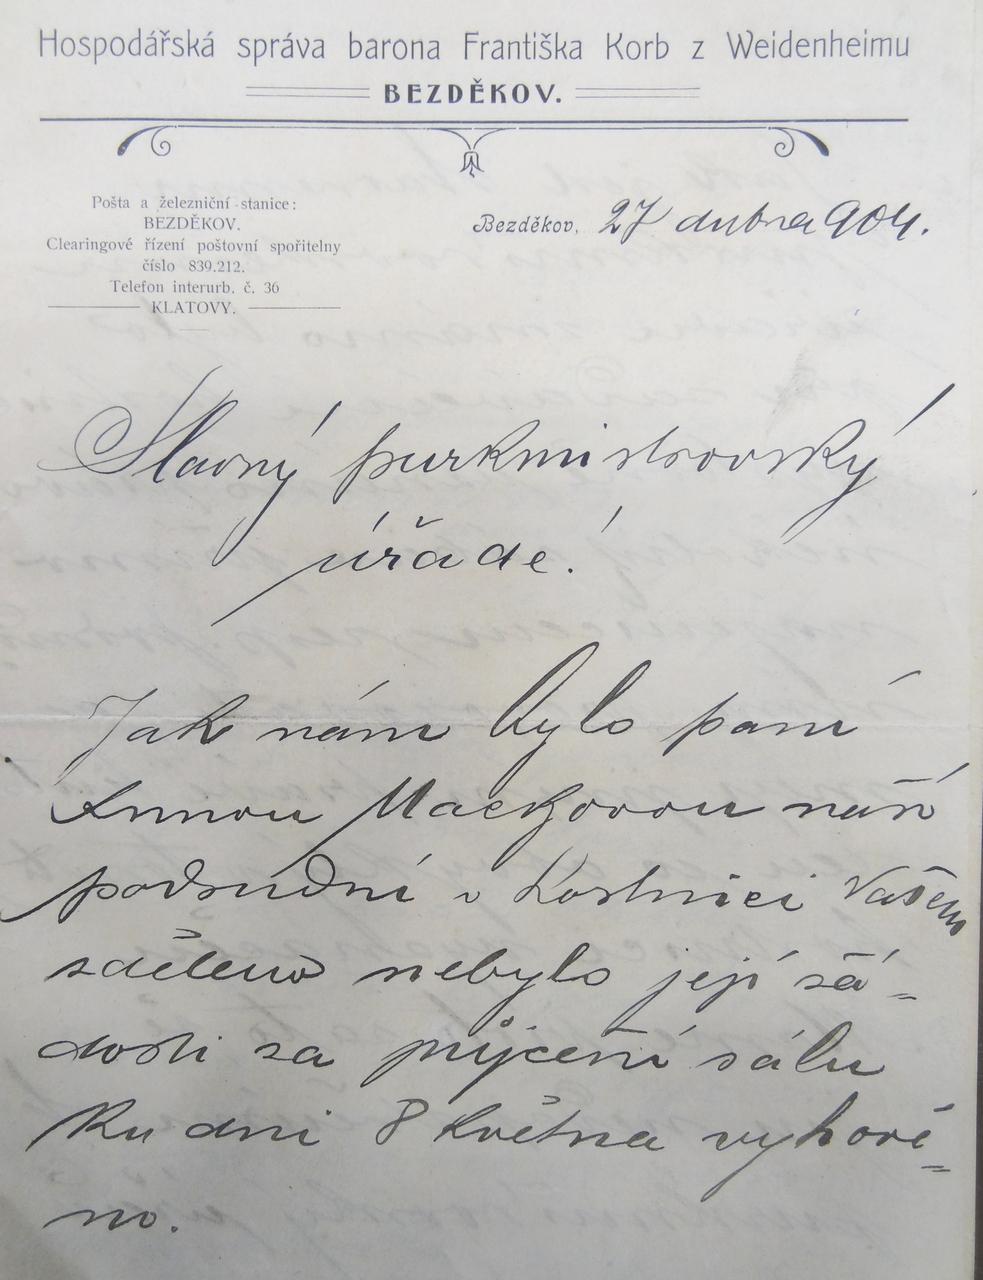 Hospodářská správa barona Františka Korb z Weidenheimu
BEZDĚKOV.
Pošta a železniční stanice:
BEZDĚKOV.
Clearingové řízení poštovní spořitelny
číslo 839.212.
Telefon interurb. č. 36
KLATOVY.
Bezděkov, 27 dubna 904.
Slavný purkmistrovský
úřade!
Jak nám bylo paní
Annou Mackovou naší
sděleno nebylo její žá=
dosti za půjčení sálu
ku dni 8 května vyhově=
no.